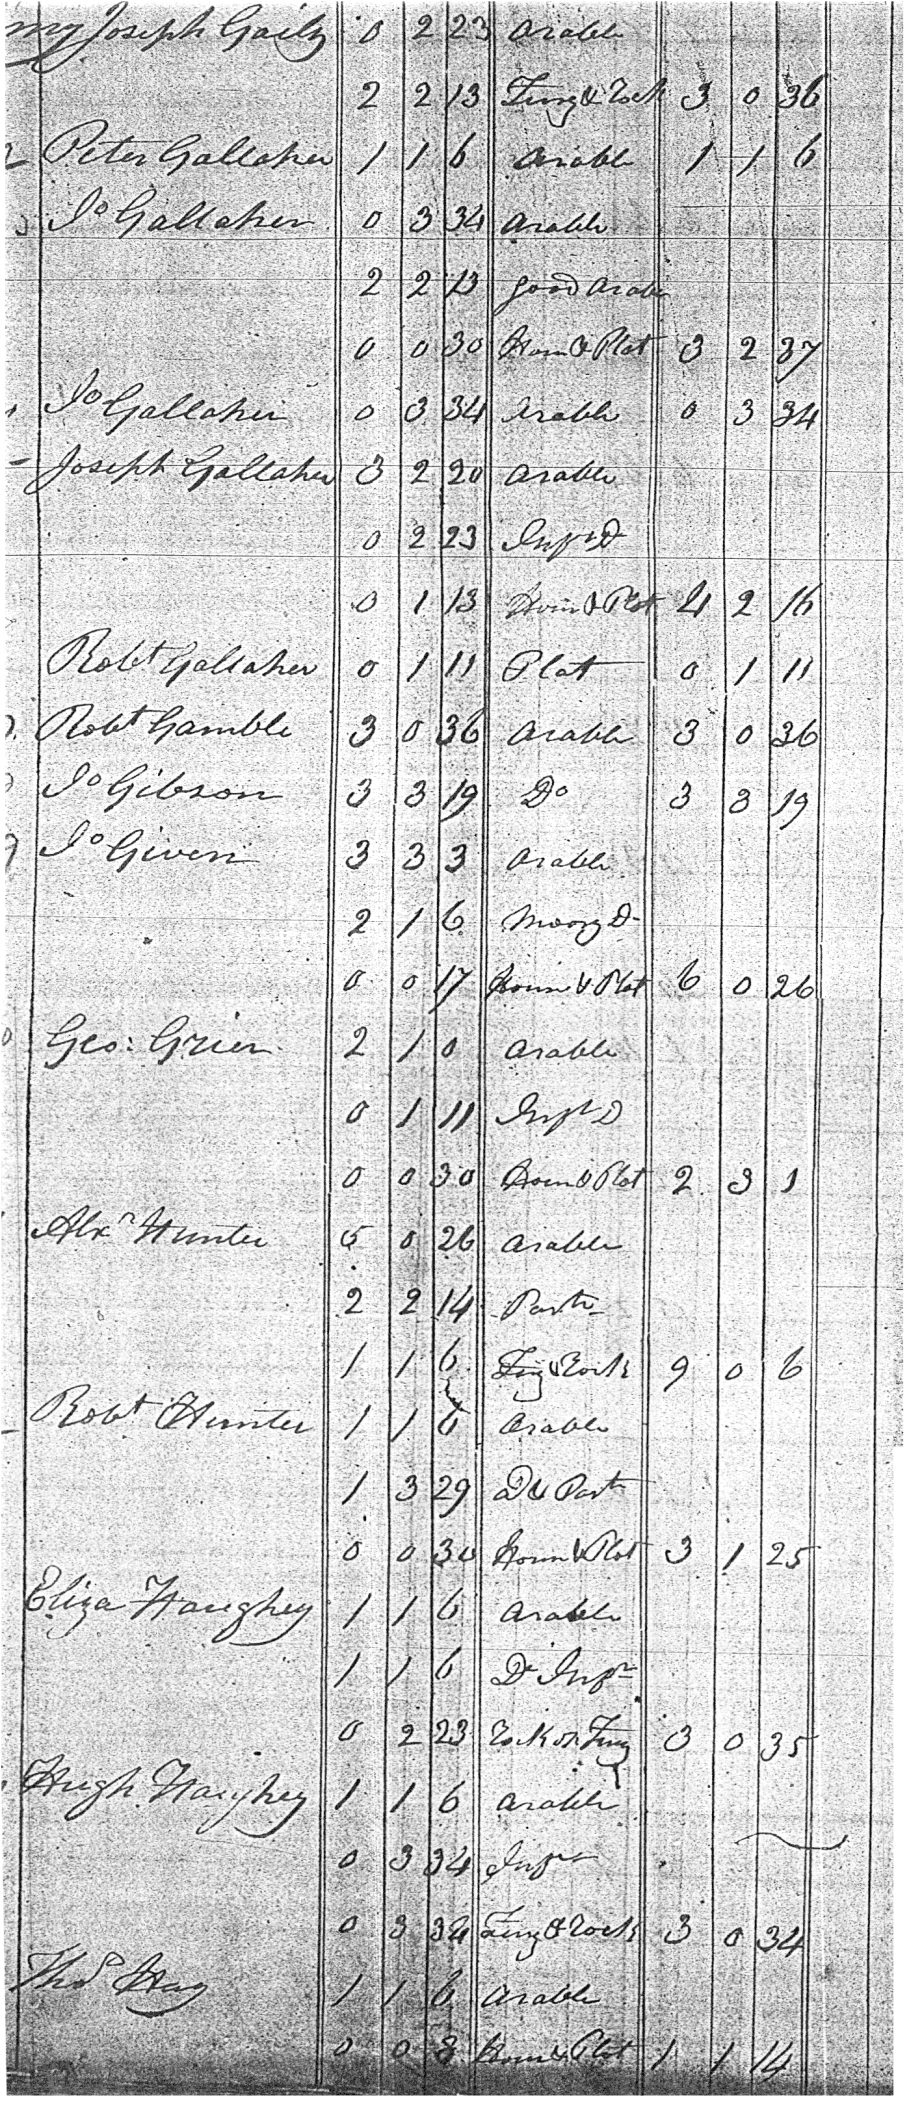 Joseph Gaily 0 2 23 Arable
2 2 13 Fury & Rock 3 0 36
Peter Gallaher 1 1 6 Arable 1 1 6
Jo Gallaher 0 3 34 Arable
2 2 13 good Arable
0 0 30 & Plot 3 2 37
Jo Gallaher 0 3 34 Arable 0 3 34
Joseph Gallaher 3 2 20 Arable
0 2 23 Infr D
0 1 13 & Plot 4 2 16
Robt Gallaher 0 1 11 Plot 0 1 11
Robt Gamble 3 0 36 Arable 3 0 36
Jo Gibson 3 3 19 Do 3 3 19
Jo Given 3 3 3 Arable
2 1 6 Moory D
0 0 17 & Plot 6 0 26
Geo: Grier 2 1 0 Arable
0 1 11 Infr D
0 0 30 & Plot 2 3 1
Alxr Hunter 5 0 26 Arable
2 2 14 Past
1 1 6 & Rock 9 0 6
Robt Hunter 1 1 6 Arable
1 3 29 D & Past
0 0 30 & Plot 3 1 25
Eliza Haughey 1 1 6 Arable
1 1 6 Do Infr
0 2 23 Rock or 3 0 35
Hugh Haughey 1 1 6 Arable
0 3 34 Infr
0 3 34 & Rock 3 0 34
Thos Hay 1 1 6 Arable
0 0 8 & Plot 1 1 14